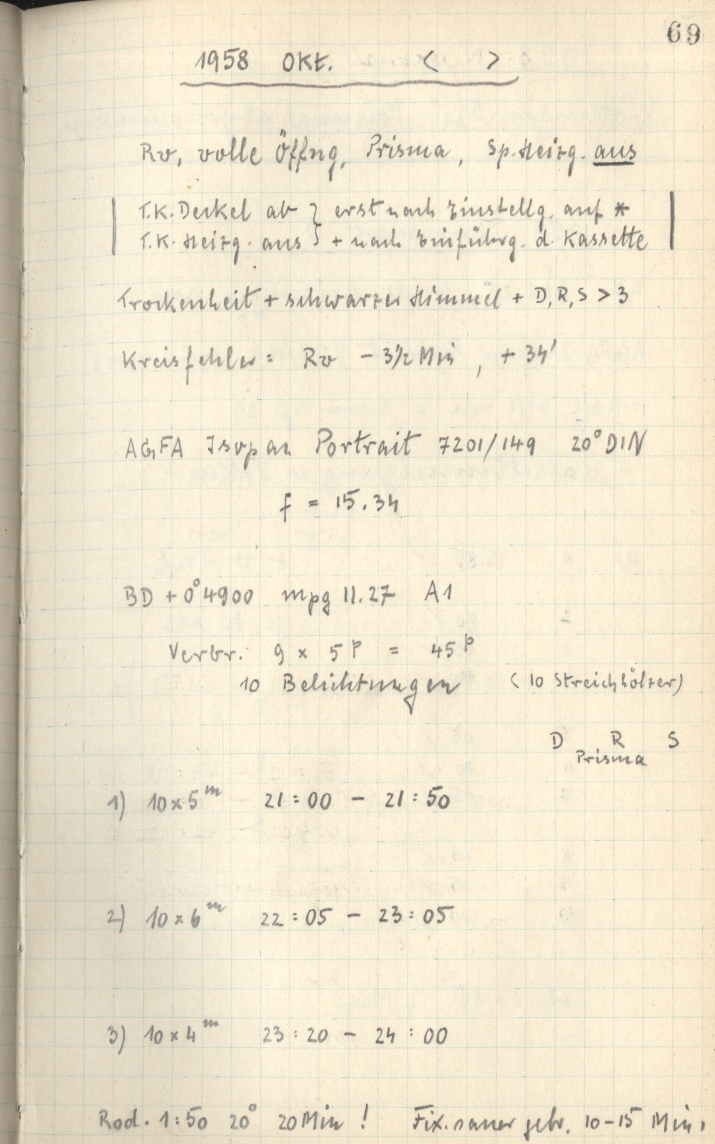 69
1958 OKT. < >
Rv, volle Öffng, Prisma, Sp.Heizg. aus
T.K. Deckel ab } erst nach Einstellg. auf *
T.K. Heizg. aus } + nach Einführg. d. Kassette
Trockenheit + schwarzer Himmel + D, R, S > 3
Kreisfehler: Rv - 3½ Min, + 34'
AGFA Isopan Portrait 7201/149 20° DIN
f = 15.34
BD + 0°4900 mpg 11.27 A1
Verbr. 9 x 5P = 45P
10 Belichtungen (10 Streichhölzer)
D R S
Prisma
1) 10 x 5m 21:00 - 21:50
2) 10 x 6m 22:05 - 23:05
3) 10 x 4m 23:20 - 24:00
Rod. 1:50 20° 20 Min! Fix. sauer gebr. 10-15 Min.